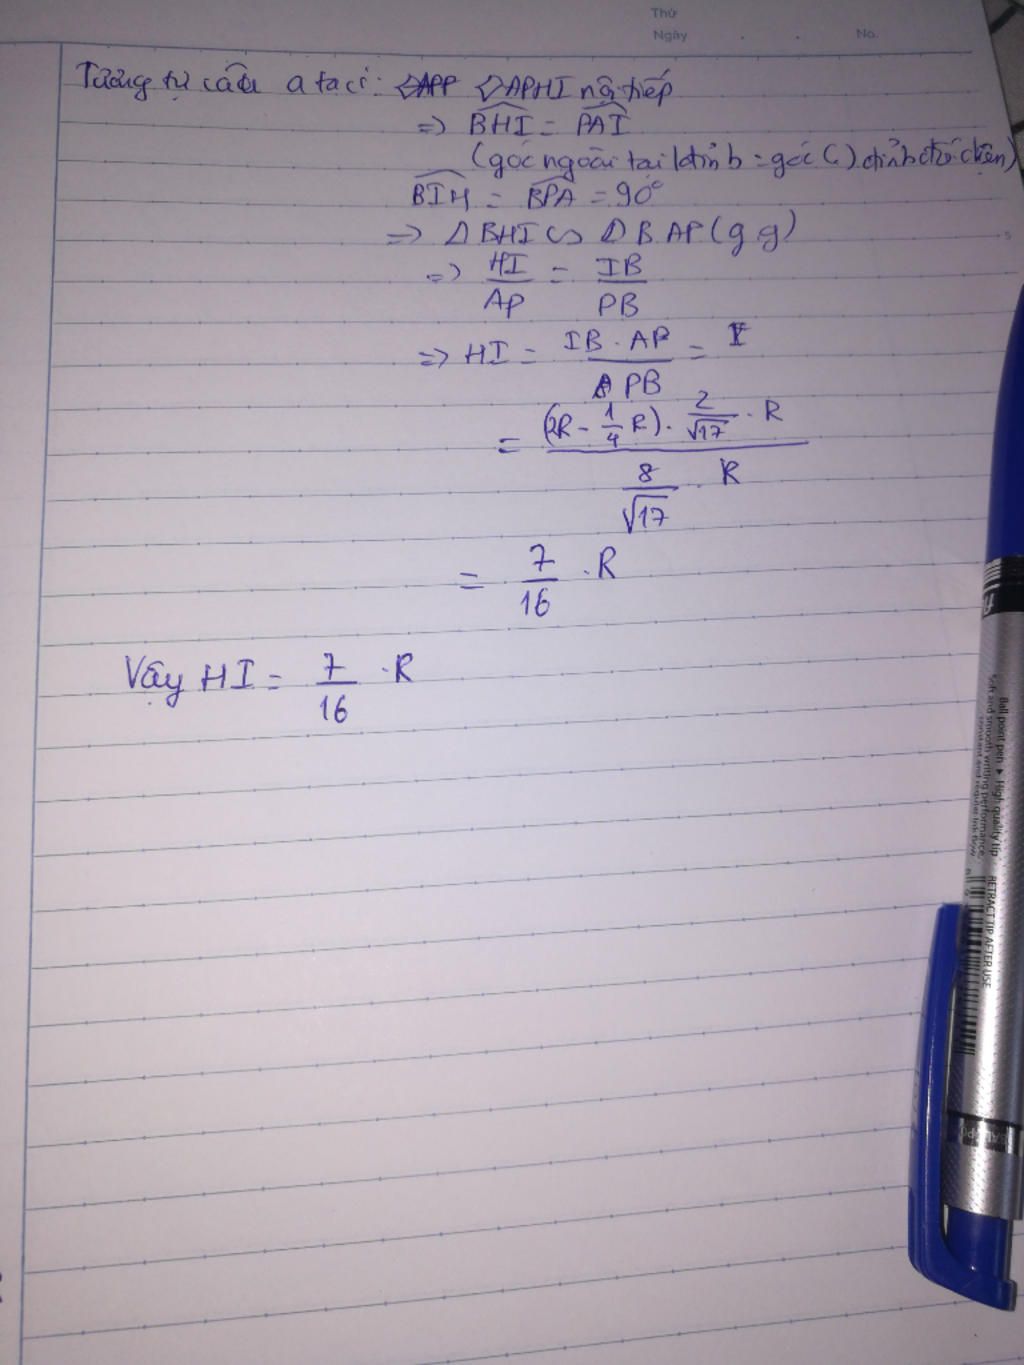 Thứ
Ngày . . No.
Tương tự câu a ta có: APP APHI nội tiếp
=> BHI = PAI
(góc ngoài tại 1 đỉnh = góc () đỉnh đối diện)
BIH = BPA = 90°
=> Δ BHI ∽ Δ BAP (g.g)
=> HI/AP = IB/PB
=> HI = IB . AP / PB = I
= (2R - 1/4 R) . 2/√17 . R / 8/√17 . R
= 7/16 . R
Vậy HI = 7/16 . R
5
Ball point pen ▸ High quality tip
Soft and smooth writing performance,
constant and regular ink flow
RETRACT TIP AFTER USE